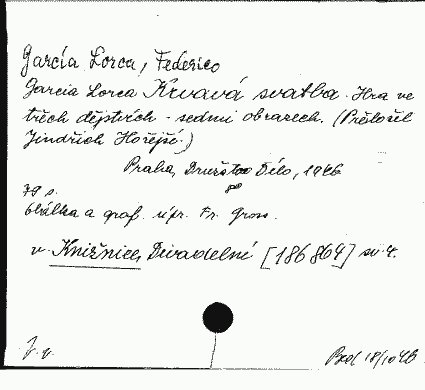 García Lorca, Federico
García Lorca Krvavá svatba. Hra ve
třech dějstvích - sedmi obrazech. (Přeložil
Jindřich Hořejší.)
Praha, Družstvo Dílo, 1946
79 s.
Obálka a graf. úpr. Fr. Gross.
v. Knižnice Divadelní [186 864] sv. 4.
18/10 46